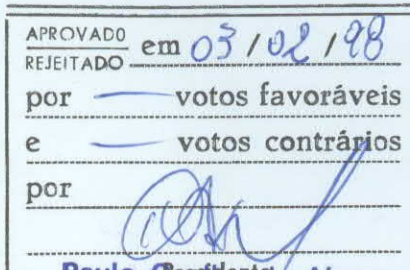 APROVADO
REJEITADO em 03/02/98
por — votos favoráveis
e — votos contrários
por
Paulo